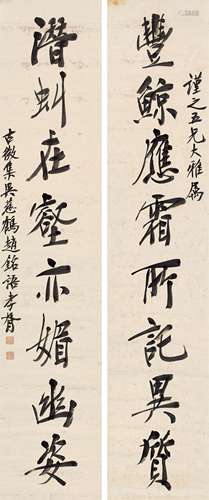 豐鯨應霜所託異質
謹之五兄大雅属
潛虯在壑亦媚幽姿
古微集吳慈鶴趙銘語孝胥